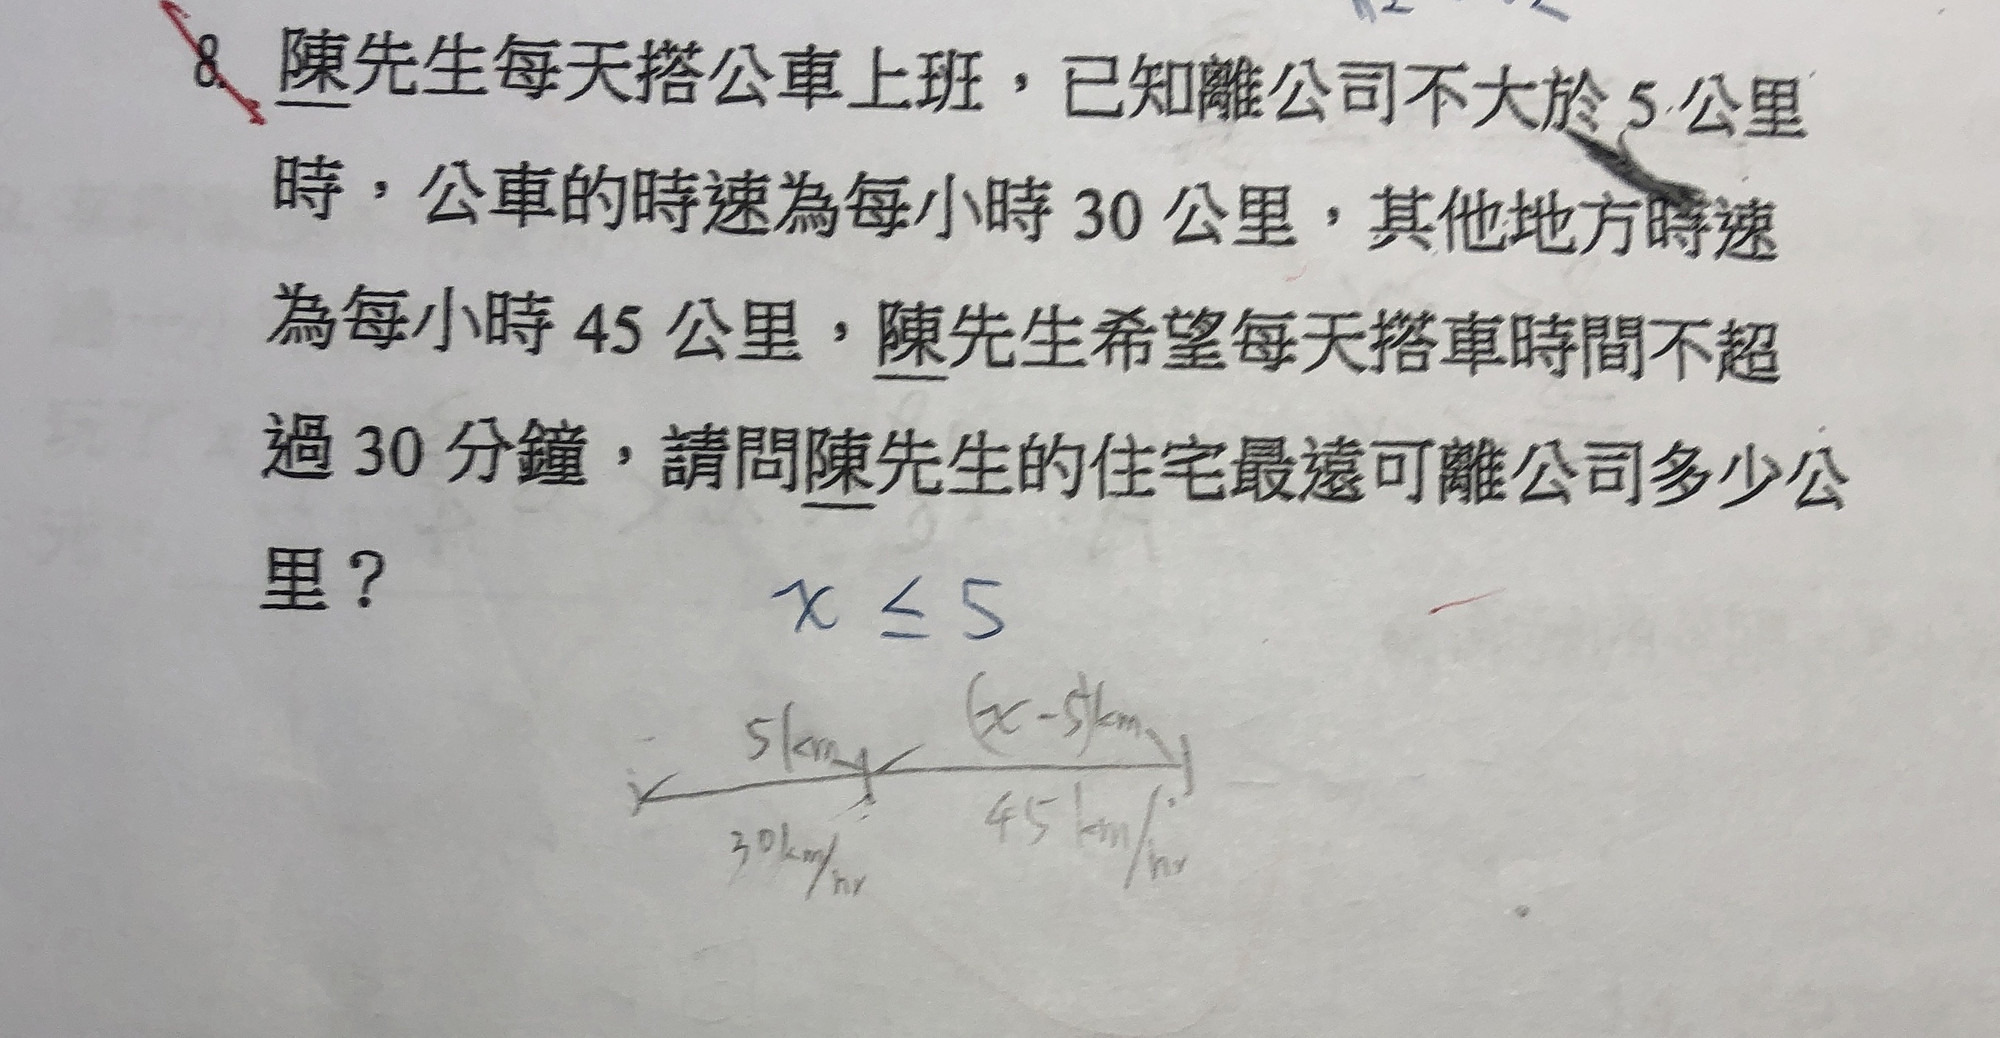 8. 陳先生每天搭公車上班，已知離公司不大於 5 公里
時，公車的時速為每小時 30 公里，其他地方時速
為每小時 45 公里，陳先生希望每天搭車時間不超
過 30 分鐘，請問陳先生的住宅最遠可離公司多少公
里？
x ≤ 5
5km (x-5)km
30km/hr 45km/hr